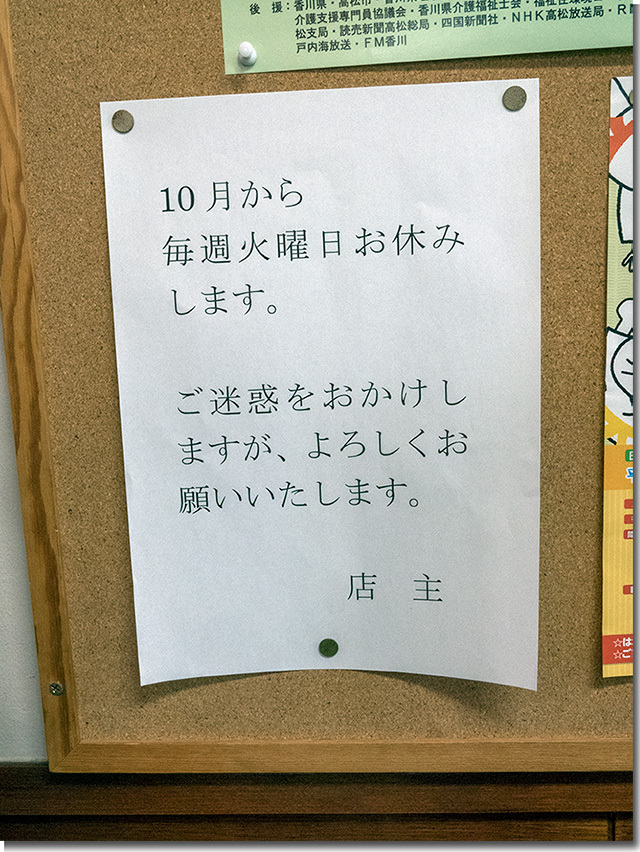 後 援：香川県・高松市・香川県
介護支援専門員協議会・香川県介護福祉士会・福祉住環境
松支局・読売新聞高松総局・四国新聞社・NHK高松放送局・R
戸内海放送・FM香川
10月から
毎週火曜日お休み
します。
ご迷惑をおかけし
ますが、よろしくお
願いいたします。
店 主
☆は
☆ご